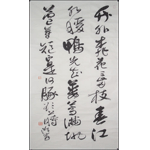 竹外桃花三兩枝春江
水暖鴨先知蒌蒿滿地
芦芽短正是河豚欲上時